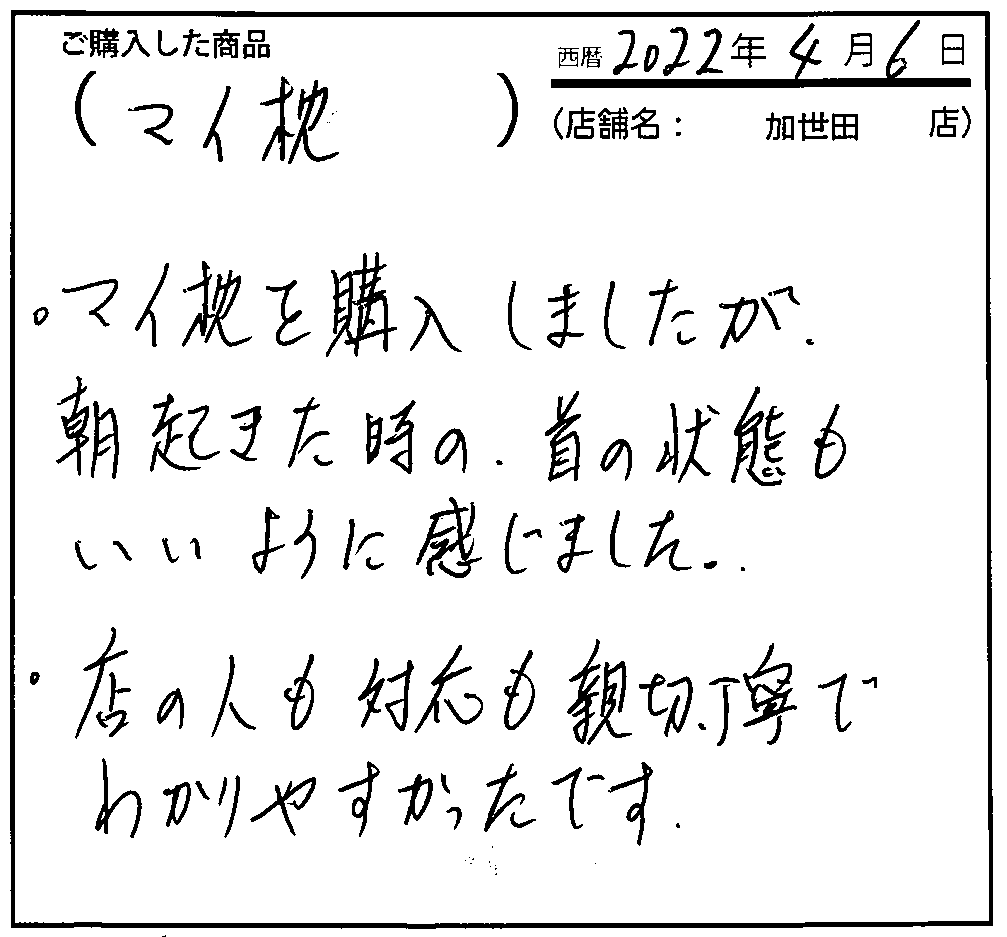 ご購入した商品
西暦 2022年 4月 6日
(マイ枕)
(店舗名: 加世田 店)
。マイ枕を購入しましたが、
朝起きた時の、首の状態も
いいように感じました。
・店の人も対応も親切、丁寧で
わかりやすかったです.